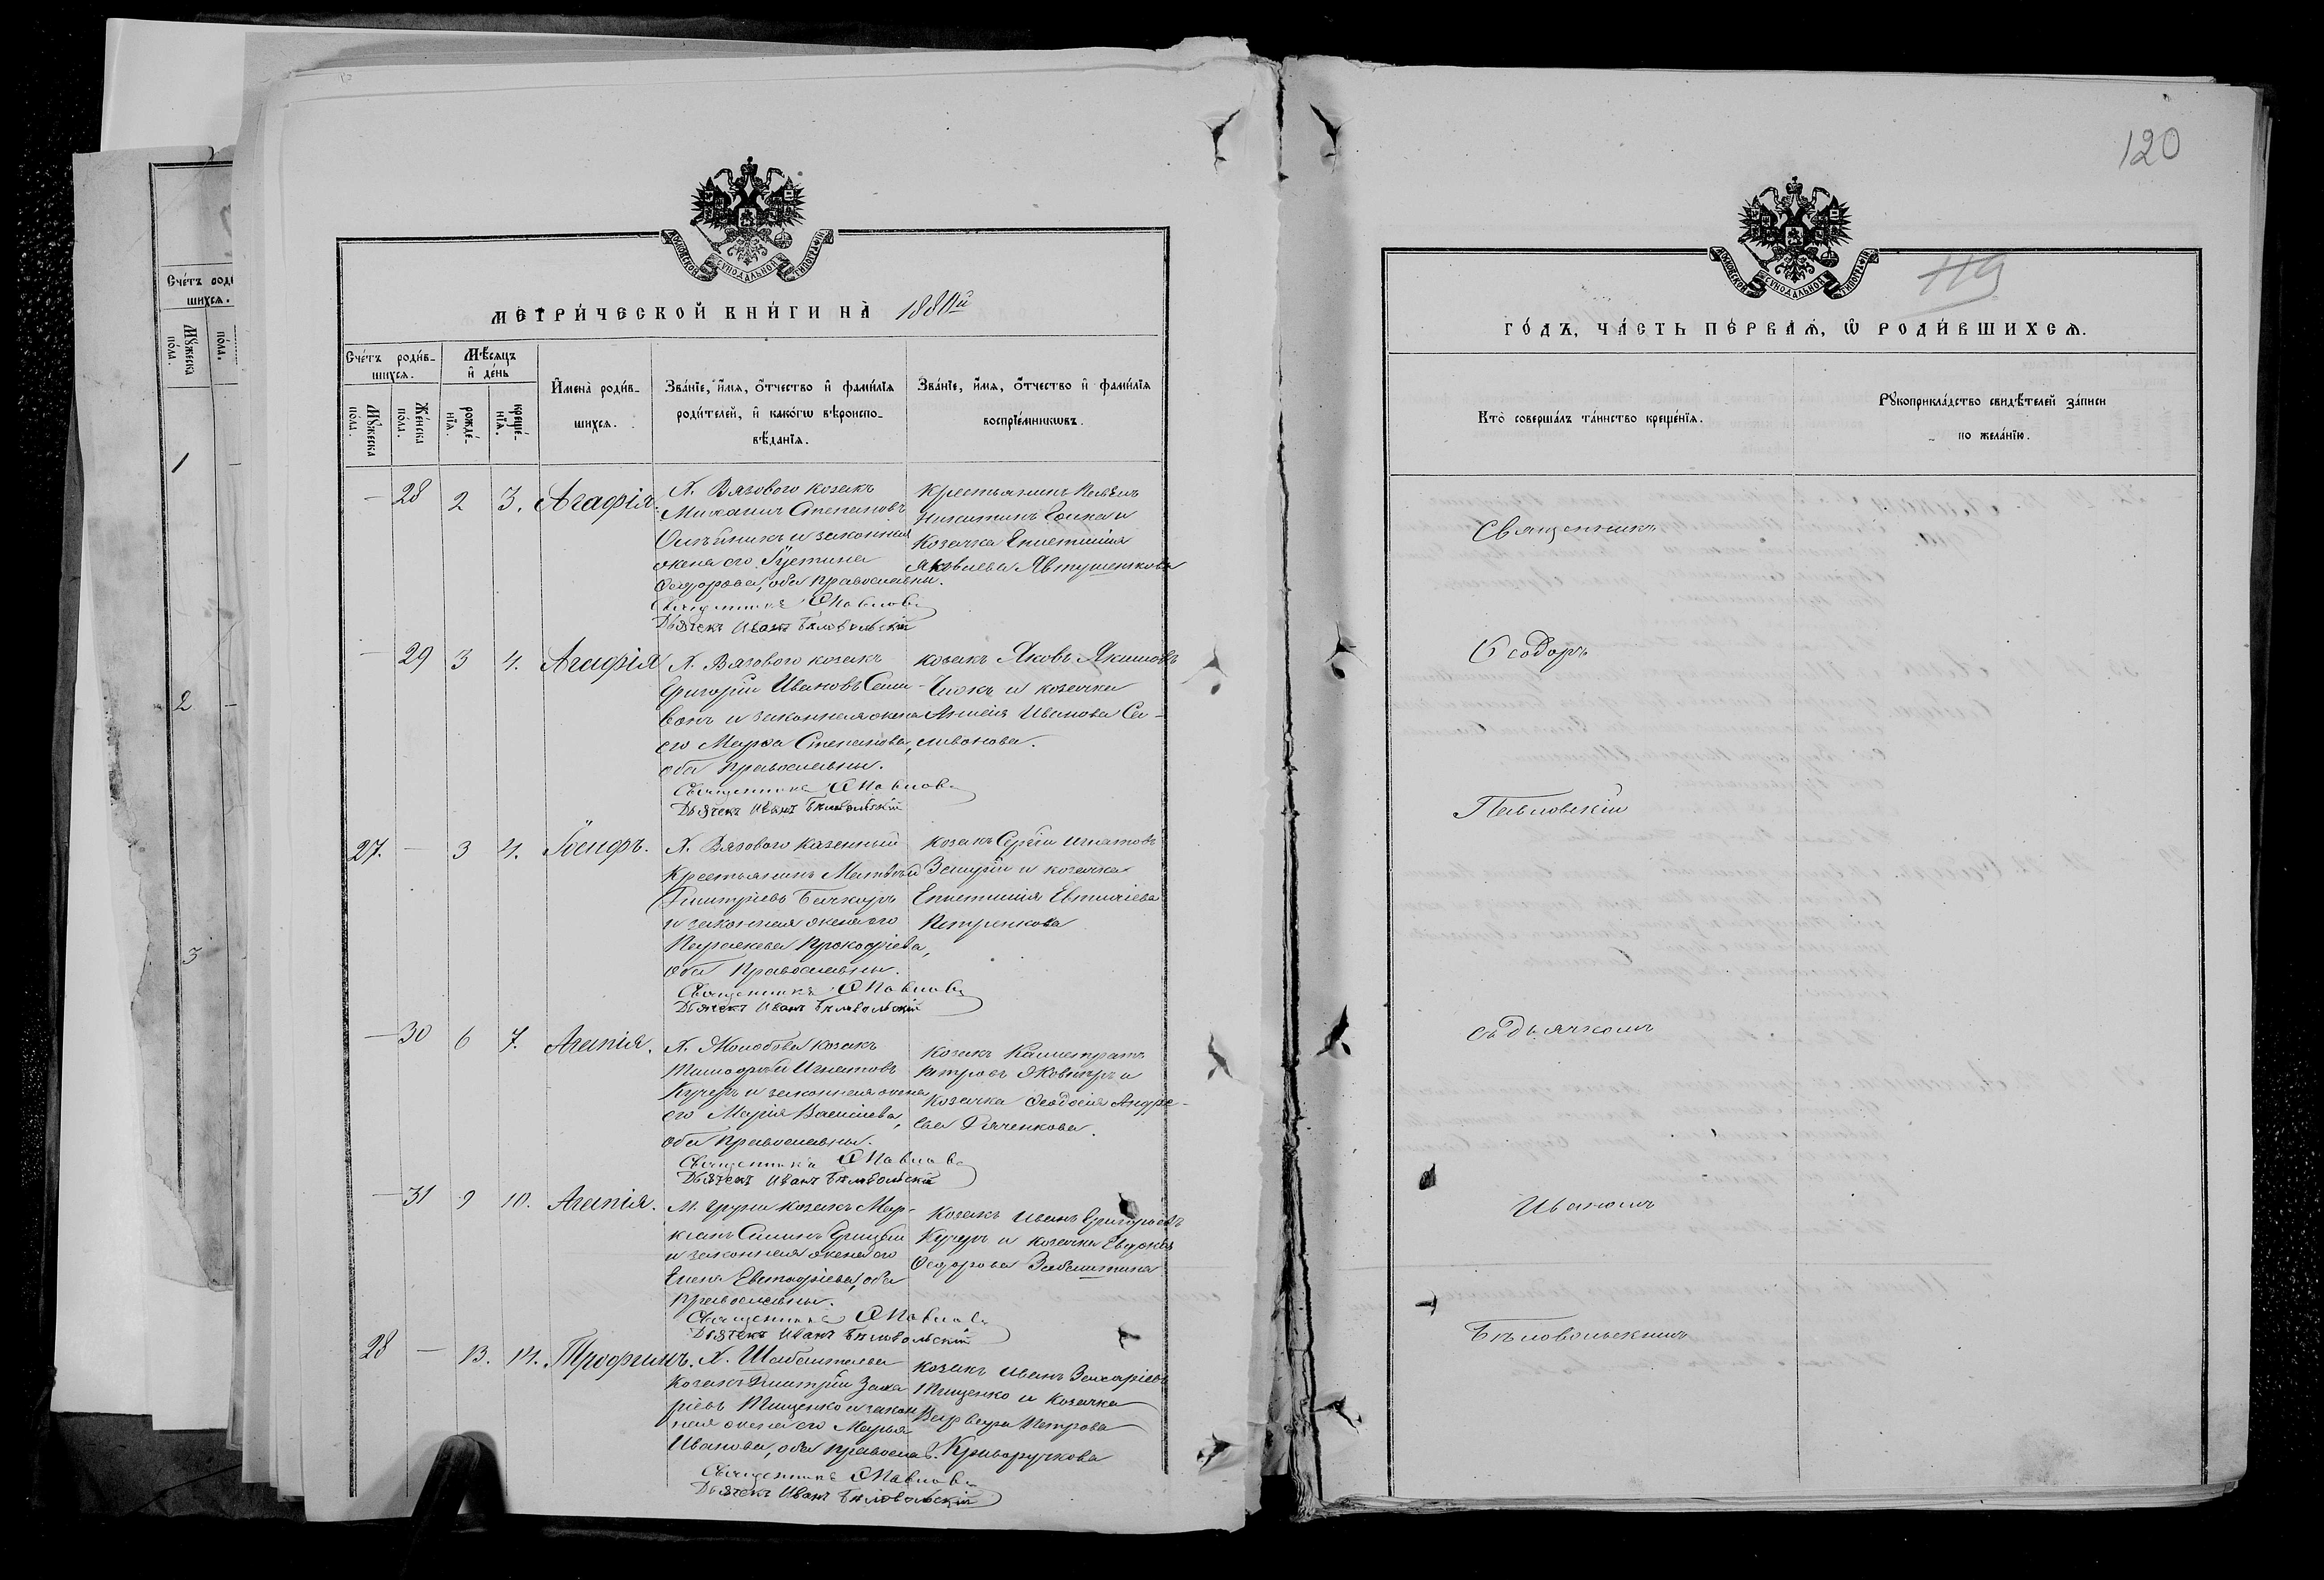 120
119
МОСКОВСКОЙ СѴНОДАЛЬНОЙ ТИПОГРАФІИ
МЕТРИ́ЧЕСКОЙ КНИ́ГИ НА̀ 188
Сче́тъ роди́в-
шихсѧ.
Мѣ́сѧцъ
и҆ де́нь
Мꙋ́жеска по́ла.
Же́нска по́ла.
рожде́-
нїѧ.
креще́-
нїѧ.
И҆мена̀ роди́в-
шихсѧ.
Зва́нїе, и҆́мѧ, ѻ҆́тчество и҆ фами́лїѧ
роди́телей, и҆ како́гѡ вѣроиспо-
вѣ́данїѧ.
Зва́нїе, и҆́мѧ, ѻ҆́тчество и҆ фами́лїѧ
воспрїе́мникѡвъ.
— 28 2 3. Агафія.
Х. Вязового козакъ
Михаилъ Степановъ
и законная
жена его Іустина
Ѳеодорова, оба православны.
Священникъ Ѳ Павловс
Дьячекъ Иванъ Бѣловольскій
Крестьянинъ
Никитинъ и
Козачка Епистимія
Яковлева Явтушенкова
— 29 3 4. Агафія
Х. Вязового козакъ
Григорій Ивановъ Сали-
вонъ и законная жена
его Марфа Степанова,
оба православны.
Священникъ Ѳ Павловс
Дьячекъ Иванъ Бѣловольскій
козакъ Яковъ Якимовъ
и козачка
Ивановa Са-
ливонова.
27. — 3 4. Іосифъ.
Х. Вязового казенный
Крестьянинъ Матвѣй
Димитріевъ
и законная жена его
Параскева Прокофіева,
оба православны.
Священникъ Ѳ Павловс
Дьячекъ Иванъ Бѣловольскій
козакъ Сергій Игнатовъ
и козачка
Епистимія Евтихіева
Петренкова
— 30 6 7. Агапія.
Х. козакъ
Тимофѣй Игнатовъ
Кучеръ и законная жена
его Марія Васильева,
оба православны.
Священникъ Ѳ Павловс
Дьячекъ Иванъ Бѣловольскій
Козакъ Каллистратъ
Петровъ и
козачка Ѳеодосія Андре-
ева Дяченкова.
— 31 9 10. Агапія.
М. Груни козакъ Мар-
кіанъ
и законная жена его
Елена Евстафіева, оба
православны.
Священникъ Ѳ Павловс
Дьячекъ Иванъ Бѣловольскій
Козакъ Иванъ Григорьевъ
Кучеръ и козачка Евфимія
Ѳеодорова
28 — 13. 14. Трофимъ.
Х.
Козакъ Димитрій Заха
ріевъ Тищенко и закон
ная жена его Марья
Иванова, оба православ.
Священникъ Ѳ Павловс
Дьячекъ Иванъ Бѣловольскій
козакъ Иванъ Захаріевъ
Тищенко и козачка
Варвара Петрова
Криворучкова
ГО́ДЪ, ЧА́СТЬ ПЕ́РВАѦ, Ѡ҆ РОДИ́ВШИХСѦ.
Кто̀ соверша́лъ та́инство креще́нїѧ.
Рꙋкоприкла́дство свидѣ́телей за́писи
по жела́нїю.
Священникъ
Ѳеодоръ
Павловскій
съ дьячкомъ
Иваномъ
Бѣловольскимъ
Сче́тъ роди
шихсѧ.
Мꙋ́жеска по́ла
по́ла.
1
2
3